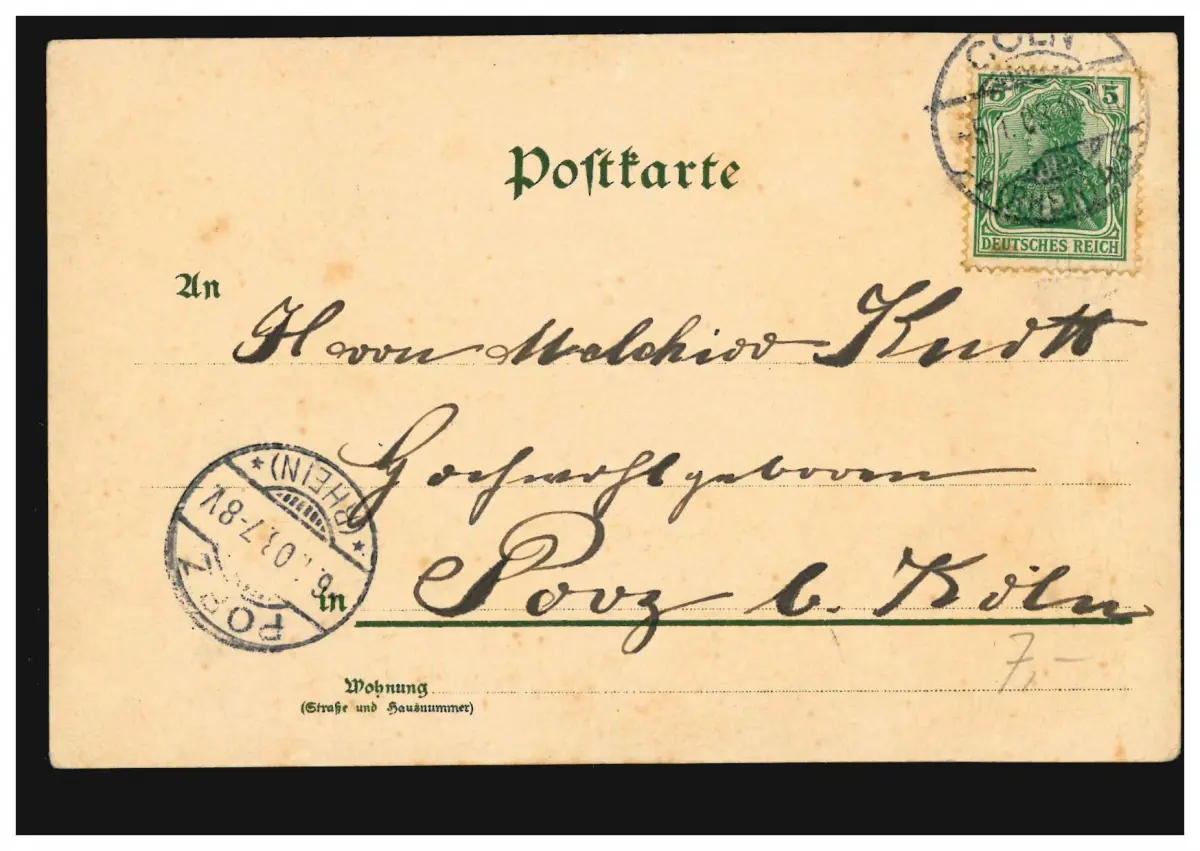 CÖLN
5 5
DEUTSCHES REICH
Postkarte
An
Herrn Melchior Knott
Hochwohlgeboren
(RHEIN)
6.1.03.7-8V.
PORZ
in Porz b. Köln
7,-
Wohnung
(Straße und Hausnummer)